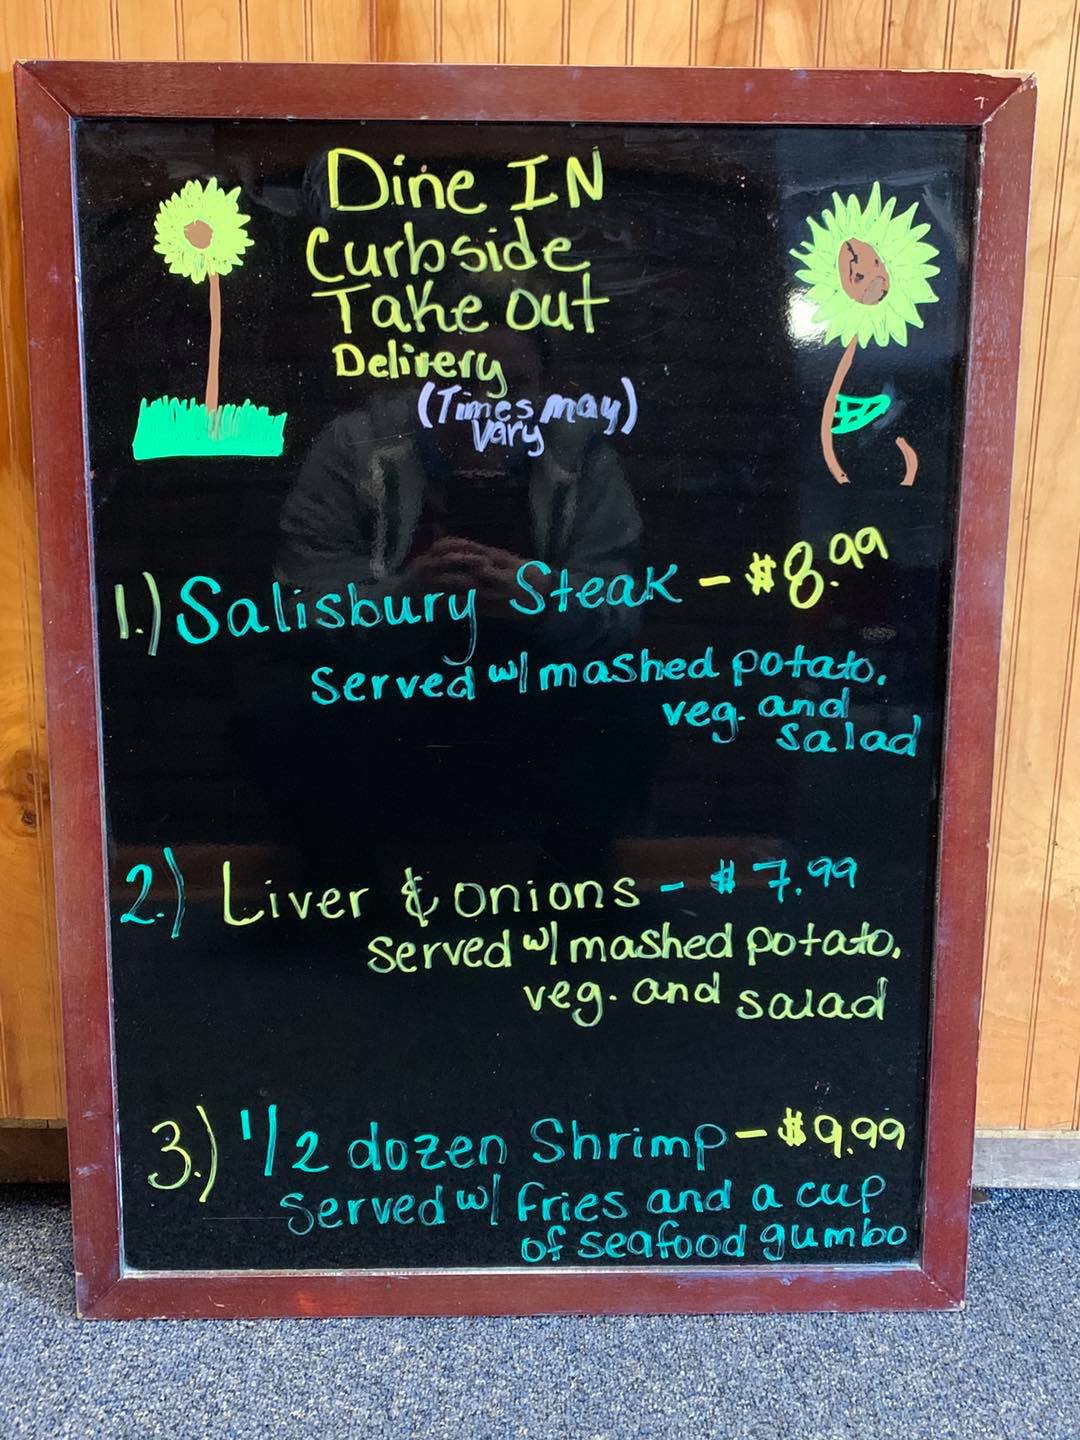 Dine IN
Curbside
Take out
Delivery
(Times may)
vary
1.) Salisbury Steak - $8.99
served w/ mashed potato.
veg. and
salad
2.) Liver & onions - $7.99
served w/ mashed potato.
veg. and salad
3.) 1/2 dozen Shrimp - $9.99
served w/ fries and a cup
of seafood gumbo